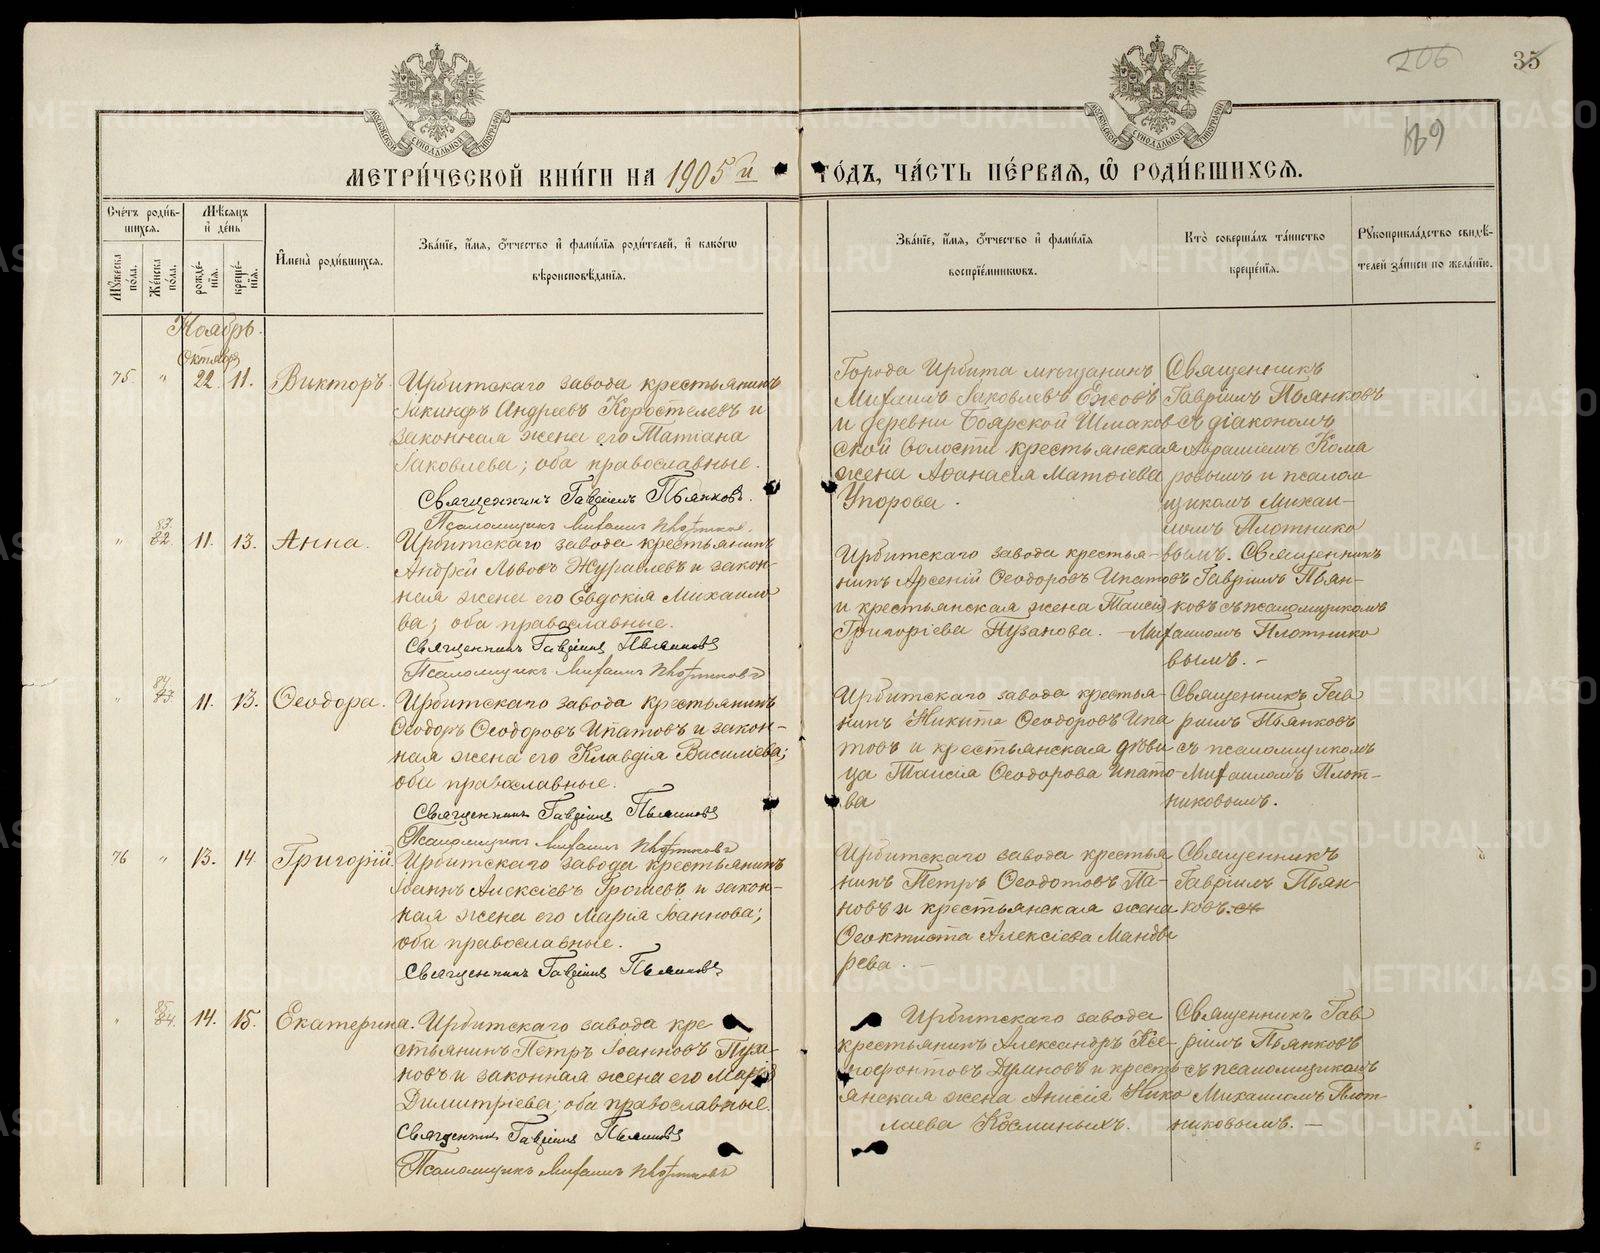 206
35
169
МЕТРИ́ЧЕСКОЙ КНИ́ГИ НА 1905й
ГО́ДЪ, ЧА́СТЬ ПЕ́РВАЯ, Ѡ РОДИ́ВШИХСЯ.
Сче́тъ роди́в-
шихся.
Мꙋжеска по́ла.
Же́нска по́ла.
Мѣ́сяцъ и де́нь
рожде́-нїя.
креще́-нїя.
Имена̀ роди́вшихся.
Зва́нїе, и́мя, о́тчество и фами́лїя роди́телей, и како́гѡ
вѣроисповѣ́данїя.
Зва́нїе, и́мя, о́тчество и фами́лїя
воспрїе́мникѡвъ.
Кто̀ соверша́лъ та́инство
креще́нїя.
Рꙋкоприкла́дство свидѣ́-
телей за́писи по жела́нїю.
Ноябрь.
Октября
75. " 22. 11. Викторъ.
Ирбитскаго завода крестьянинъ
Іакинфъ Андреевъ Коростелевъ и
законная жена его Татіана
Іаковлева; оба православные.
Священникъ Гавріилъ Пьянковъ.
Псаломщикъ Михаилъ Плотниковъ
Города Ирбита мѣщанинъ
Михаилъ Іаковлевъ Ежовъ
и деревни Боярской Шмаков-
ской волости крестьянская
жена Аѳанасія Матѳіева
Упорова.
Священникъ
Гавріилъ Пьянковъ
съ діакономъ
Авраміемъ Кома
ровымъ и псалом
щикомъ Михаи-
ломъ Плотнико
вымъ.
" 83. 82. 11. 13. Анна.
Ирбитскаго завода крестьянинъ
Андрей Львовъ Журавлевъ и закон-
ная жена его Евдокія Михаило
ва; оба православные.
Священникъ Гавріилъ Пьянковъ
Псаломщикъ Михаилъ Плотниковъ
Ирбитскаго завода крестья-
нинъ Арсеній Ѳеодоровъ Ипатовъ
и крестьянская жена Таисія
Григоріева Пузанова.
Священникъ
Гавріилъ Пьян-
ковъ съ псаломщикомъ
Михаиломъ Плотнико
вымъ. -
" 84. 83. 11. 13. Ѳеодора.
Ирбитскаго завода крестьянинъ
Ѳеодоръ Ѳеодоровъ Ипатовъ и закон-
ная жена его Клавдія Василіева;
оба православные.
Священникъ Гавріилъ Пьянковъ
Псаломщикъ Михаилъ Плотниковъ
Ирбитскаго завода крестья-
нинъ Никита Ѳеодоровъ Ипа
товъ и крестьянская дѣви
ца Таисія Ѳеодорова Ипато-
ва
Священникъ Гав
ріилъ Пьянковъ
съ псаломщикомъ
Михаиломъ Плот-
никовымъ.
76 " 13. 14. Григорій.
Ирбитскаго завода крестьянинъ
Іоаннъ Алексіевъ Грошевъ и закон-
ная жена его Марія Іоаннова;
оба православные.
Священникъ Гавріилъ Пьянковъ
Ирбитскаго завода крестья
нинъ Петръ Ѳеодотовъ Па-
новъ и крестьянская жена
Ѳеоктиста Алексіева Мандры
рева. -
Священникъ
Гавріилъ Пьян-
ковъ. съ
" 85. 84. 14. 15. Екатерина.
Ирбитскаго завода кре
стьянинъ Петръ Іоанновъ Пуза-
новъ и законная жена его Марія
Димитріева; оба православные.
Священникъ Гавріилъ Пьянковъ
Псаломщикъ Михаилъ Плотниковъ
Ирбитскаго завода
крестьянинъ Александръ Ксе-
нофонтовъ Думновъ и кресть
янская жена Анисія Нико
лаева Косминыхъ.
Священникъ Гав
ріилъ Пьянковъ
съ псаломщикомъ
Михаиломъ Плот
никовымъ. -
METRIKI.GASO-URAL.RU